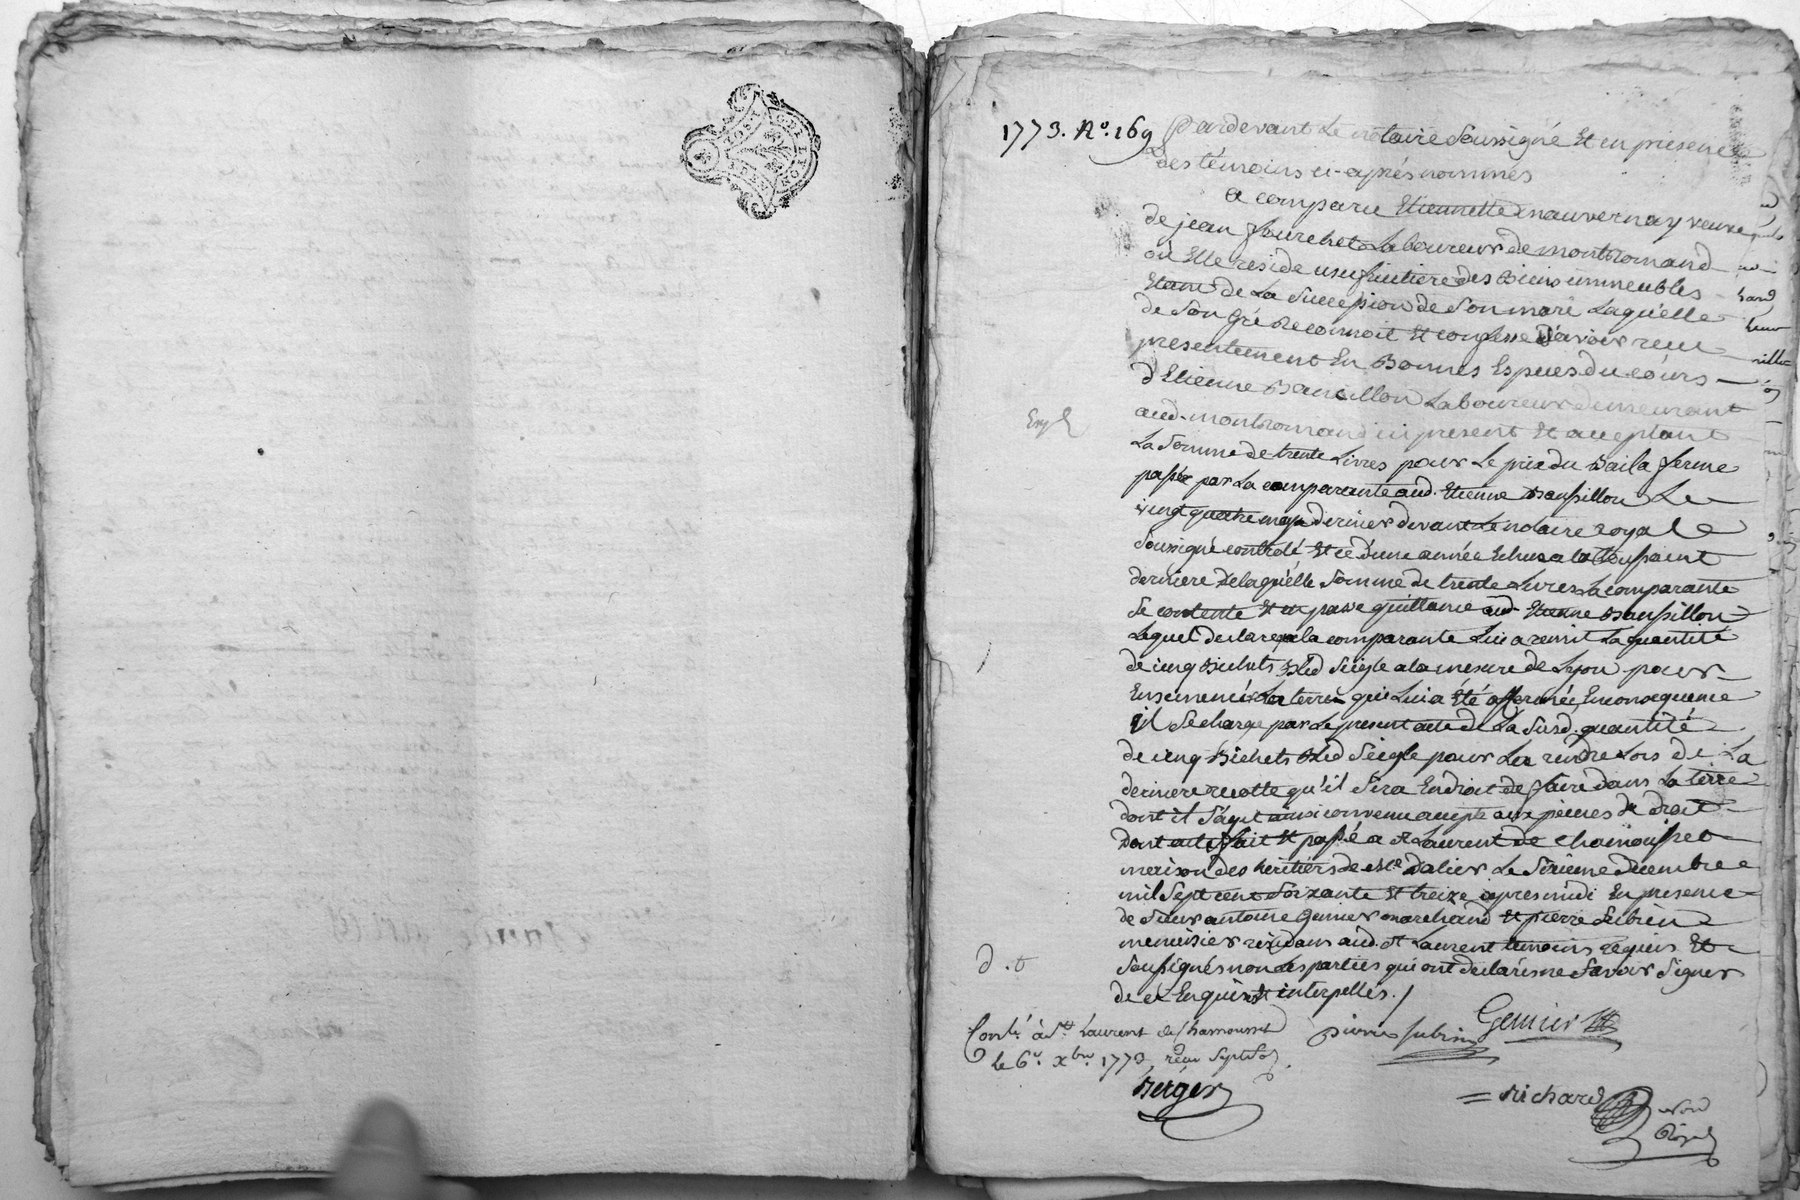 1773. No. 169 Pardevant Le notaire Soussigné Et en presence
des témoins ci-après nommés
a comparu Etiennette mauvernay veuve
de jean fourchet Laboureur de montromand
où Elle reside usufruitiere des Biens immeubles
Etant de La Succession de Son mari Laquelle
de Son gré Reconnoit Et confesse d'avoir reçu
presentement En Bonnes Especes du cours
d'Etienne Laboureur demeurant
aud. montromand ici present Et acceptant
Expl
La Somme de trente Livres pour Le prix du Bail a ferme
passé par La comparante aud. Etienne Le
vingt quatre may dernier devant Le notaire royal
Soussigné controlé Et ce d'une année Echue a la toussaint
derniere de laquelle Somme de trente Livres La comparante
Se contente Et en passe quittance aud. Etienne
Lequel declare que la comparante Lui a remit La quantité
de cinq Bichets Bled Seigle a la mesure de Lyon pour
Ensemencer La terre qui Lui a Été affermée, En consequence
il Se charge par Le present acte de La Susd. quantité
de cinq Bichets Bled Seigle pour Les rendre Lors de La
derniere recolte qu'il Sera En droit de faire dans La terre
dont il S'agit ainsi convenu accepté aux peines de droit
Dont acte fait Et passé a St Laurent de chamousset
maison des héritiers de Me Dalier Le Sixieme decembre
mil Sept cent Soixante Et treize après midi En presence
de Sieur antoine Genier marchand Et pierre Subrin
menuisier résidans aud. St Laurent temoins requis Et
Soussignés non Les parties qui ont declaré ne Savoir Signer
de ce Enquis Et interpellés./
d. t
pierre subrin Genier
Contlé à St Laurent de Chamousset
le 6e. xbre. 1773, reçu Sept Sols
Berger
= Richard
notre
Royal